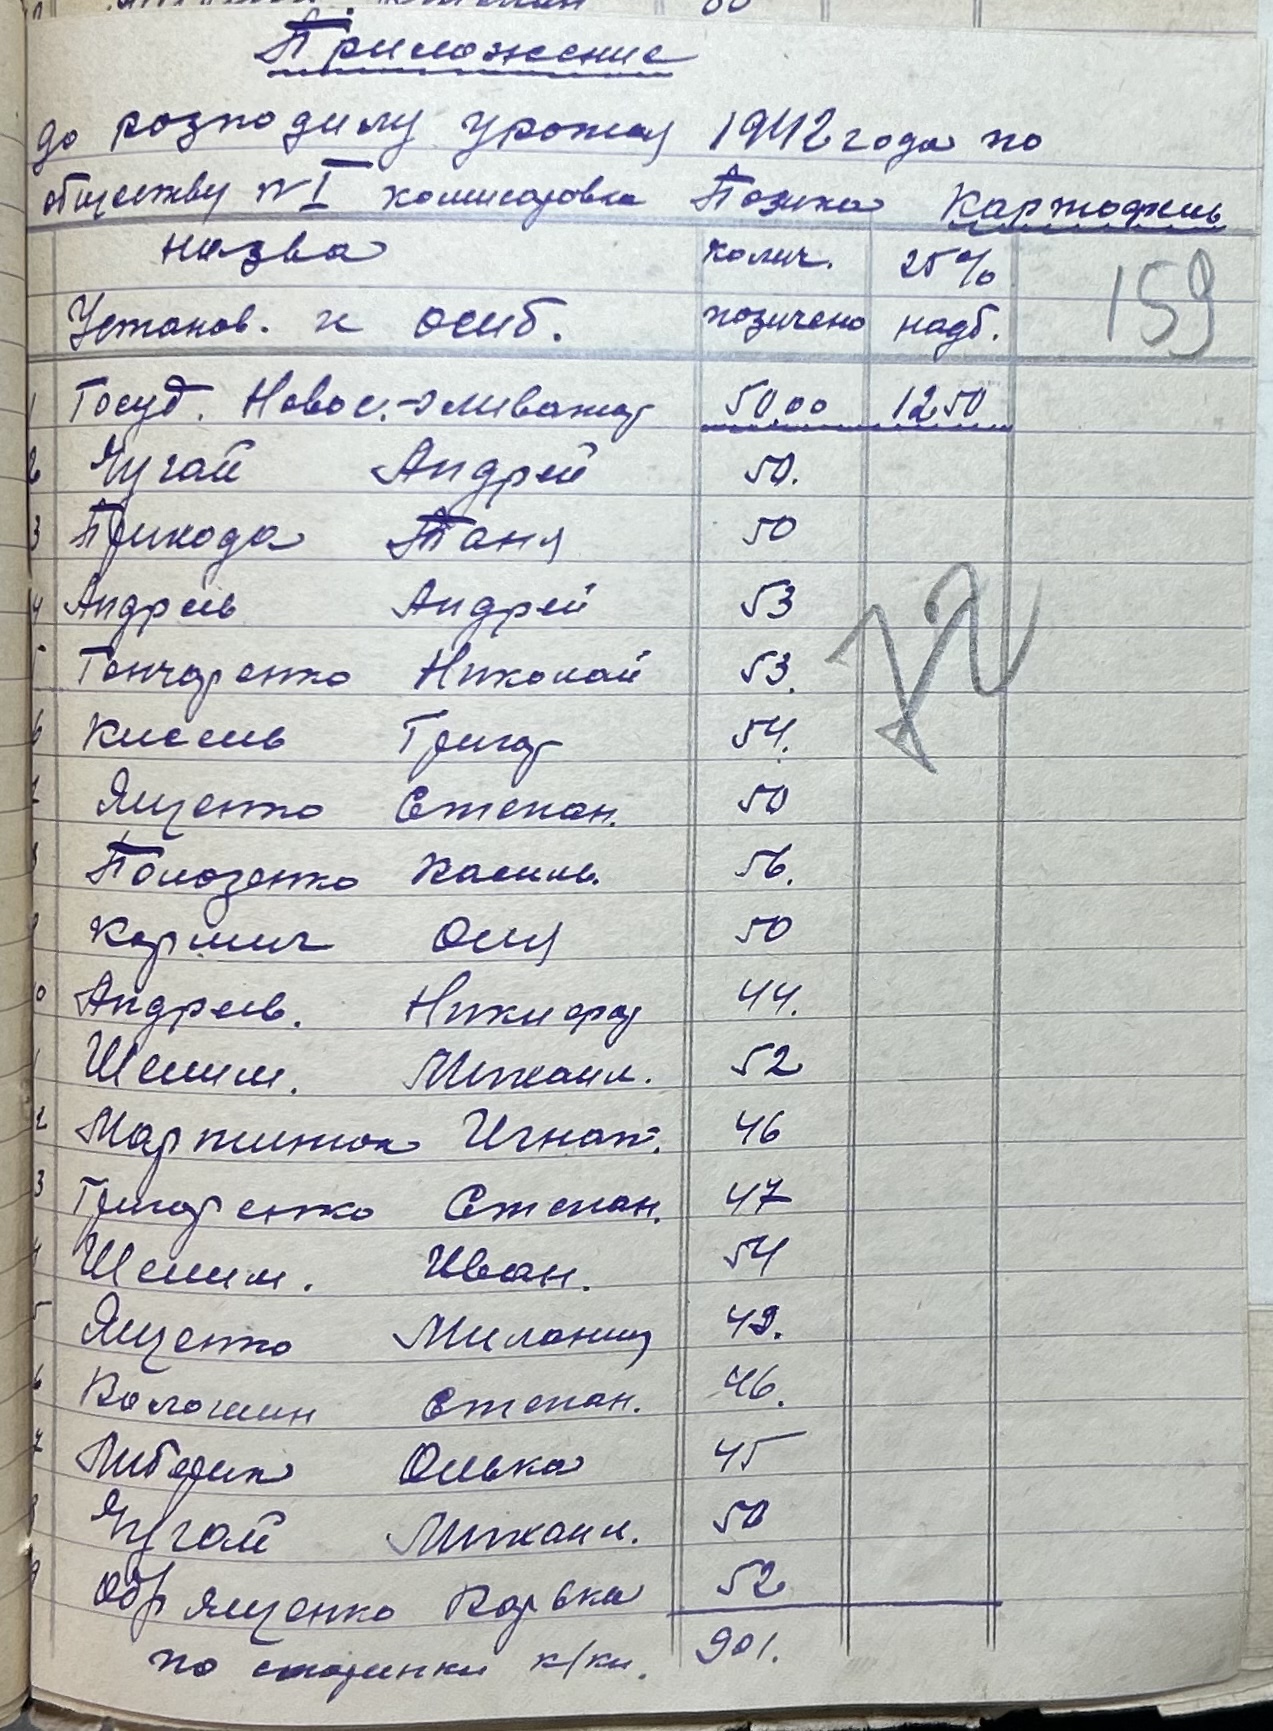 Приложение
до розподилу урожая 1942 года по
обществу №I комисаровка Позика Картофель
назва колич. 25%
Установ. и осиб. позичено надб.
159
1 Госуд. Новос. 50.00 12.50
2 Чугай Андрей 50.
3 Прихода Таня 50
4 Андреев Андрей 53
5 Гончаренко Николай 53.
72
6 Киселев Григор 54.
7 Ященко Степан. 50
8 Полозенко Василь. 56.
9 Кормич Оля 50
0 Андреев. Никифор 44.
1 Шелим. Михаил. 52
2 Мартинюк Игнат. 46
3 Григоренко Степан. 47
4 Шелим. Иван. 54
5 Ященко Милания 49.
6 Волошин Степан. 46.
7 Олька 45
8 Чугай Михаил. 50
9 Ященко Варвка 52
по сторинки к/кл. 901.